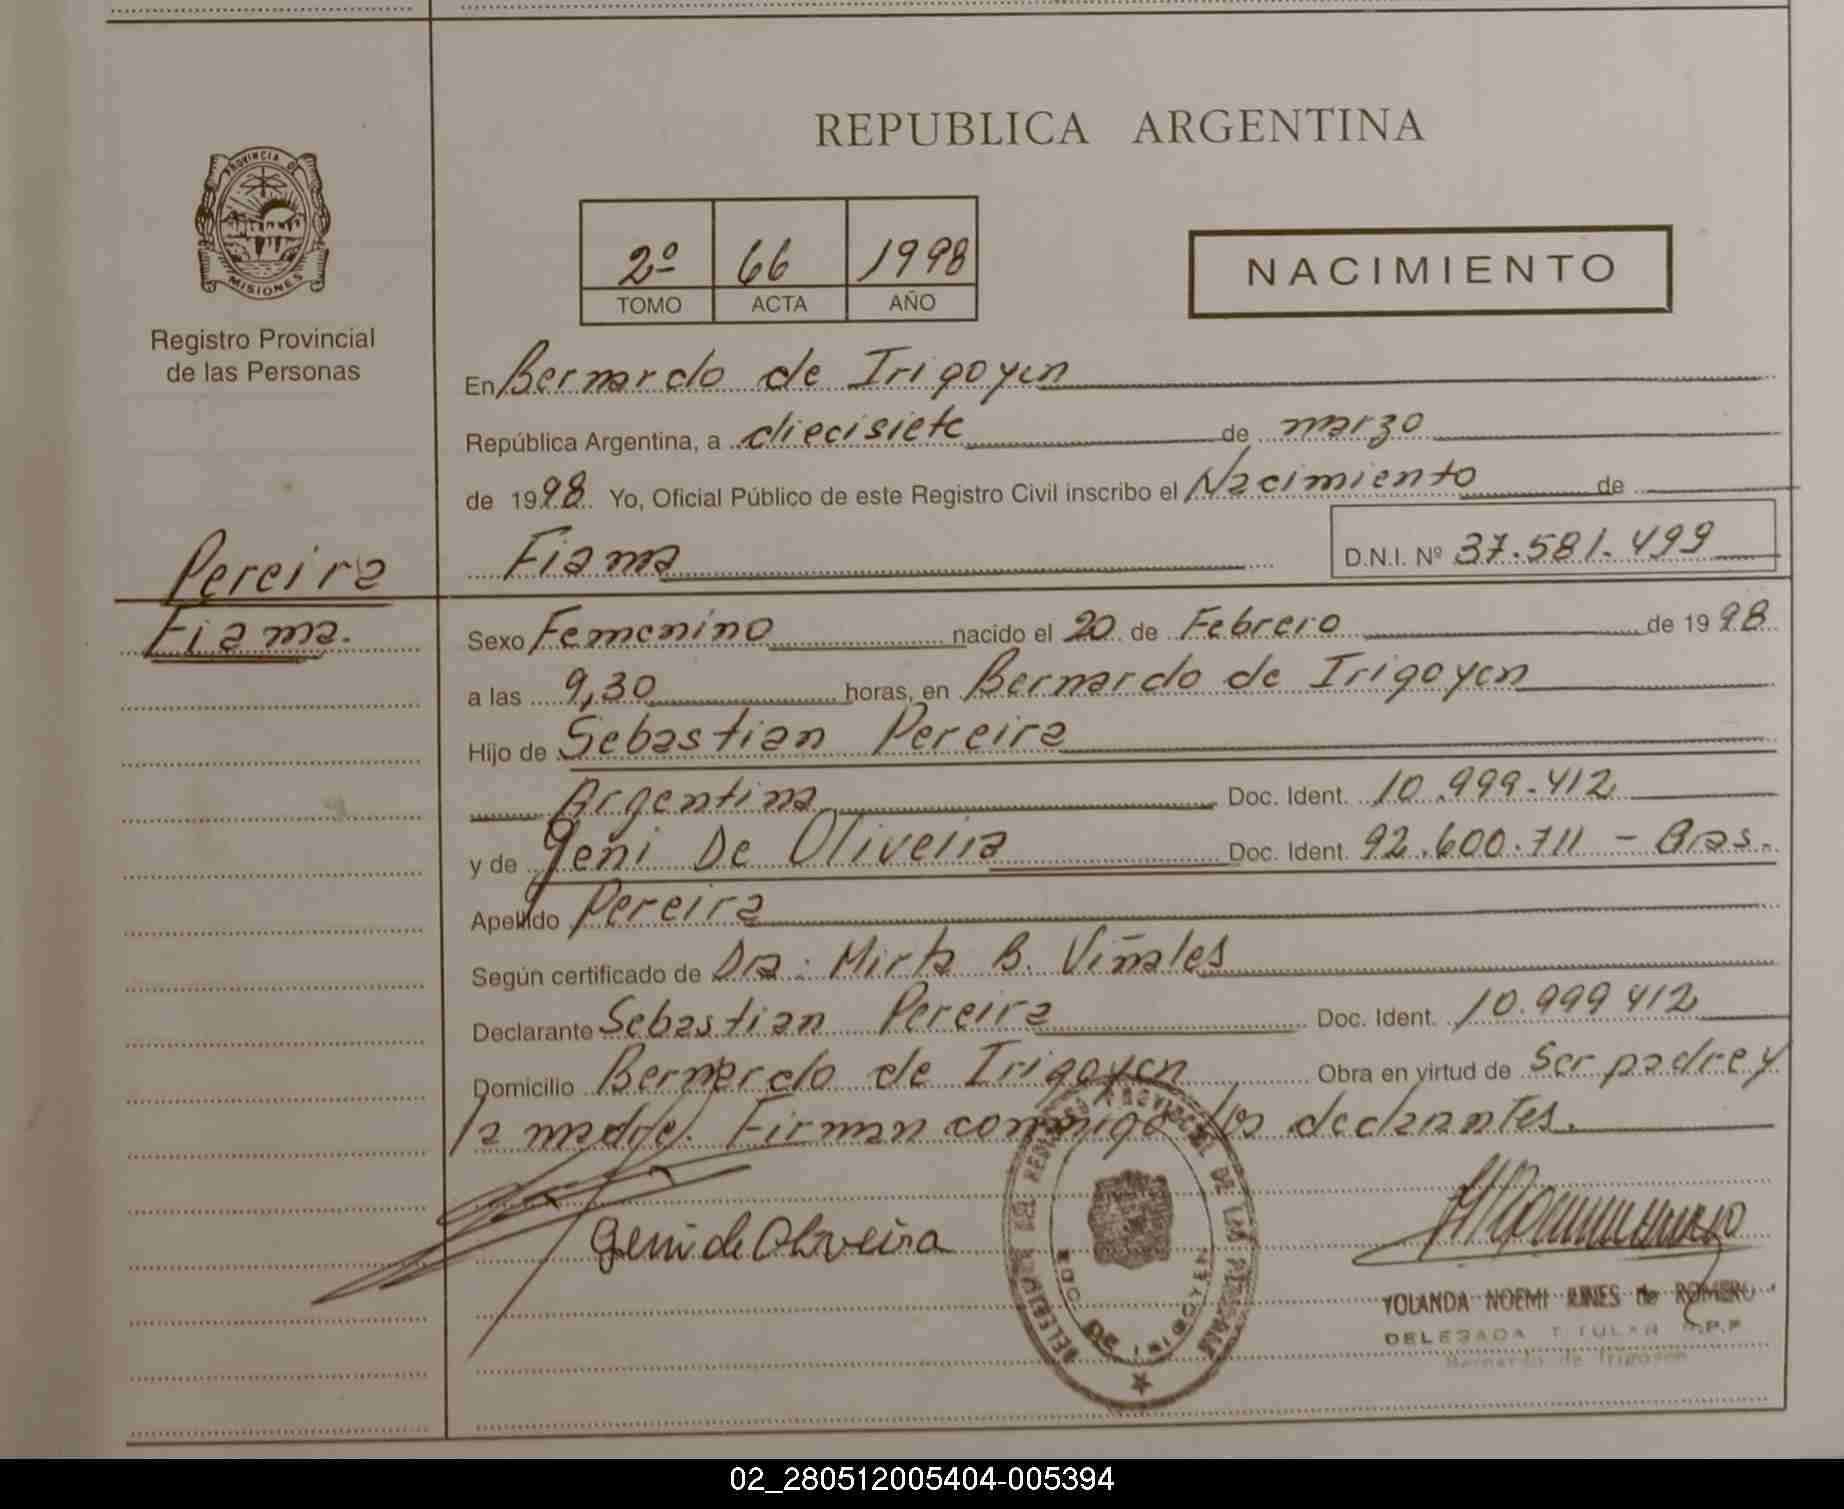 REPUBLICA ARGENTINA
PROVINCIA DE
MISIONES
Registro Provincial
de las Personas
2º 66 1998
TOMO ACTA AÑO
NACIMIENTO
En Bernardo de Irigoyen
República Argentina, a diecisiete de marzo
de 1998. Yo, Oficial Público de este Registro Civil inscribo el Nacimiento de
Fiama D.N.I. Nº 37.581.499
Pereira
Fiama.
Sexo Femenino nacido el 20 de Febrero de 1998
a las 9,30 horas, en Bernardo de Irigoyen
Hijo de Sebastian Pereira
Argentina Doc. Ident. 10.999.412
y de Geni De Oliveira Doc. Ident. 92.600.711 - Bras.
Apellido Pereira
Según certificado de Dra. Mirta B. Viñales
Declarante Sebastian Pereira Doc. Ident. 10.999 412
Domicilio Bernardo de Irigoyen Obra en virtud de Ser padre y
la madre. Firman conmigo los declarantes.
Geni de Oliveira
YOLANDA NOEMI de ROMERO
DELEGADA TITULAR R.P.P.
Bernardo de Irigoyen
02_280512005404-005394